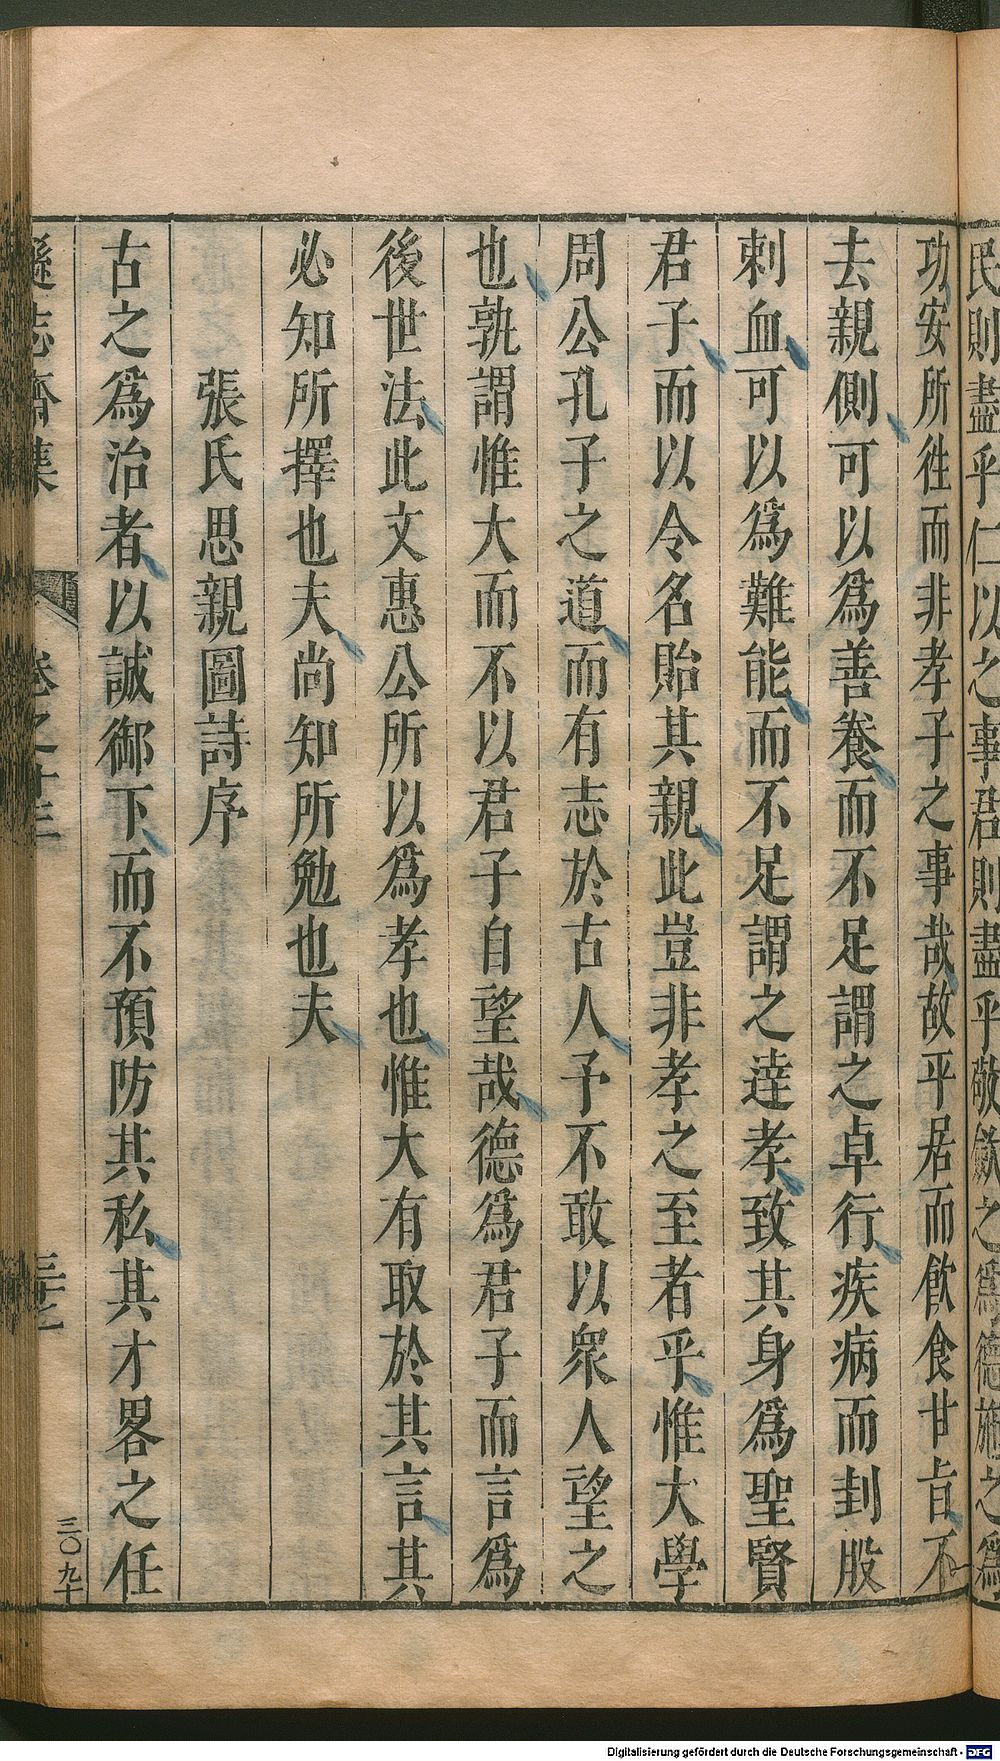 民則盡乎仁以之事君則盡乎敬歛之爲德施之爲
功安所徃而非孝子之事哉故平居而飮食甘旨不
去親側可以爲善養而不足謂之卓行疾病而刲股
刺血可以爲難能而不足謂之達孝致其身爲聖賢
君子而以令名貽其親此豈非孝之至者乎惟大學
周公孔子之道而有志於古人予不敢以衆人望之
也孰謂惟大而不以君子自望哉德爲君子而言爲
後世法此文惠公所以爲孝也惟大有取於其言其
必知所擇也夫尚知所勉也夫
張氏思親圖詩序
古之爲治者以誠御下而不預防其私其才畧之任
遜志齋集 卷之十三 三十二
三〇九十
Digitalisierung gefördert durch die Deutsche Forschungsgemeinschaft - DFG